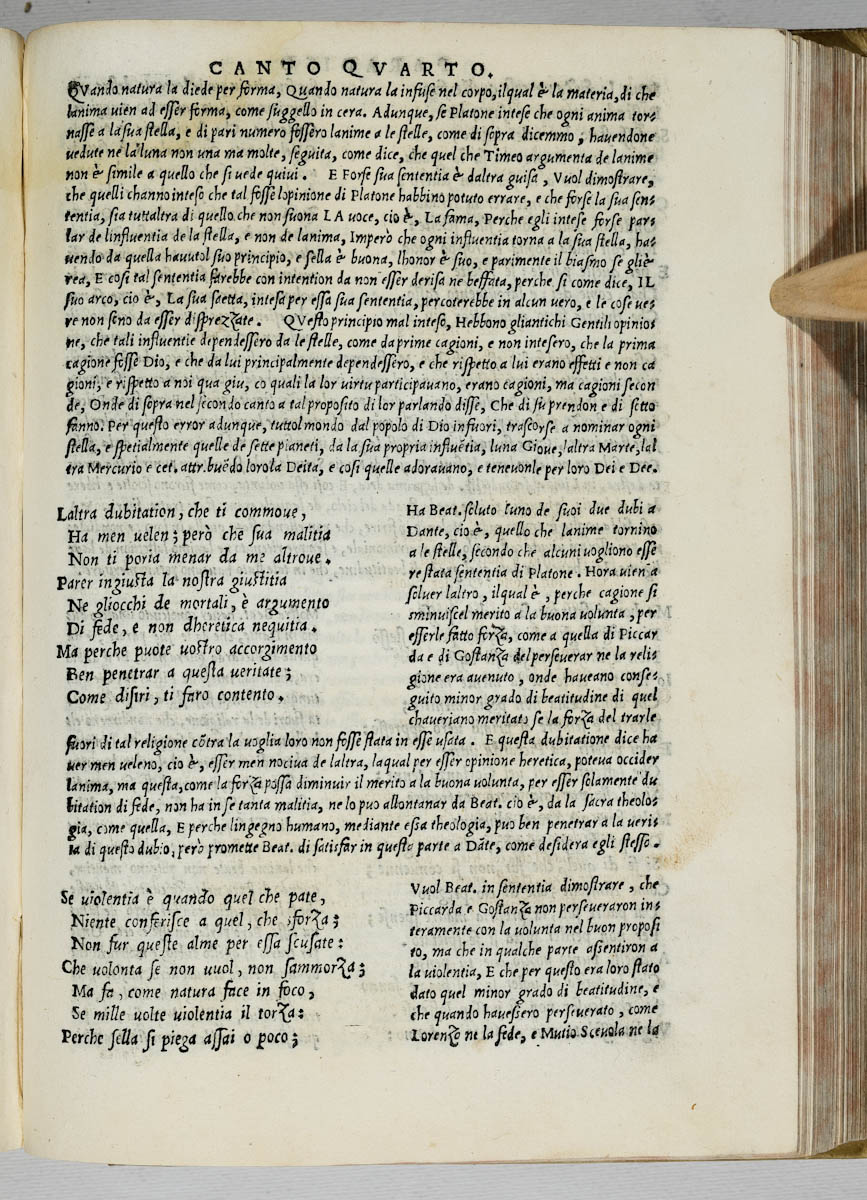 CANTO QVARTO.
QVando natura la diede per forma, Quando natura la infuse nel corpo, ilqual è la materia, di che
lanima uien ad esser forma, come suggello in cera. Adunque, se Platone intese che ogni anima tor-
nasse a la sua stella, e di pari numero fossero lanime a le stelle, come di sopra dicemmo, hauendone
uedute ne la luna non una ma molte, seguita, come dice, che quel che Timeo argumenta de lanime
non è simile a quello che si uede quiui. E Forse sua sententia è daltra guisa, Vuol dimostrare,
che quelli channo inteso che tal fosse lopinione di Platone habbino potuto errare, e che forse la sua sen-
tentia, sia tuttaltra di quello che non suona LA uoce, cio è, La fama, Perche egli intese forse par-
lar de linfluentia de la stella, e non de lanima, Imperò che ogni influentia torna a la sua stella, ha-
uendo da quella hauutol suo principio, e sella è buona, lhonor è suo, e parimente il biasmo se gliè
rea, E cosi tal sententia sarebbe con intention da non esser derisa ne beffata, perche si come dice, IL
suo arco, cio è, La sua saetta, intesa per essa sua sententia, percoterebbe in alcun uero, e le cose ue-
re non sono da esser disprezzate. QVesto principio mal inteso, Hebbono gliantichi Gentili opinio-
ne, che tali influentie dependessero da le stelle, come da prime cagioni, e non intesero, che la prima
cagione fosse Dio, e che da lui principalmente dependessero, e che rispetto a lui erano effetti e non ca
gioni, e rispetto a noi qua giu, co quali la lor uirtu participauano, erano cagioni, ma cagioni secon
de, Onde di sopra nel secondo canto a tal proposito di lor parlando disse, Che di su prendon e di sotto
fanno. Per questo error adunque, tuttol mondo dal popolo di Dio infuori, trascorse a nominar ogni
stella, e spetialmente quelle de sette pianeti, da la sua propria influẽtia, luna Gioue, laltra Marte, lal
tra Mercurio e cet. attribuẽdo loro la Deità, e cosi quelle adorauano, e teneuonle per loro Dei e Dee.
Laltra dubitation, che ti commoue,
Ha men uelen; però che sua malitia
Non ti poria menar da me altroue.
Parer ingiusta la nostra giustitia
Ne gliocchi de mortali, è argumento
Di fede, e non dheretica nequitia.
Ma perche puote uostro accorgimento
Ben penetrar a questa ueritate;
Come disiri, ti faro contento.
Ha Beat. soluto luno de suoi due dubi a
Dante, cio è, quello che lanime tornino
a le stelle, secondo che alcuni uogliono esse
re stata sententia di Platone. Hora uien a
soluer laltro, ilqual è, perche cagione si
sminuiscel merito a la buona uolunta, per
esserle fatto forza, come a quella di Piccar
da e di Gostanza del perseuerar ne la reli-
gione era auenuto, onde haueano conse-
guito minor grado di beatitudine di quel
chaueriano meritato se la forza del trarle
fuori di tal religione cõtra la uoglia loro non fosse stata in esse usata. E questa dubitatione dice ha
uer men ueleno, cio è, esser men nociua de laltra, laqual per esser opinione heretica, poteua occider
lanima, ma questa, come la forza possa diminuir il merito a la buona uolunta, per esser solamente du
bitation di fede, non ha in se tanta malitia, ne lo puo allontanar da Beat. cio è, da la sacra theolo-
gia, come quella, E perche lingegno humano, mediante essa theologia, puo ben penetrar a la ueri-
ta di questo dubio, però promette Beat. di satisfar in questa parte a Dãte, come desidera egli stesso.
Se uiolentia è quando quel che pate,
Niente conferisce a quel, che sforza;
Non fur queste alme per essa scusate:
Che uolonta se non uuol, non sammorza;
Ma fa, come natura face in foco,
Se mille uolte uiolentia il torza:
Perche sella si piega assai o poco;
Vuol Beat. in sententia dimostrare, che
Piccarda e Gostanza non perseueraron in-
teramente con la uolunta nel buon proposi
to, ma che in qualche parte assentiron a
la uiolentia, E che per questo era loro stato
dato quel minor grado di beatitudine, e
che quando hauessero perseuerato, come
Lorenzo ne la fede, e Mutio Sceuola ne la